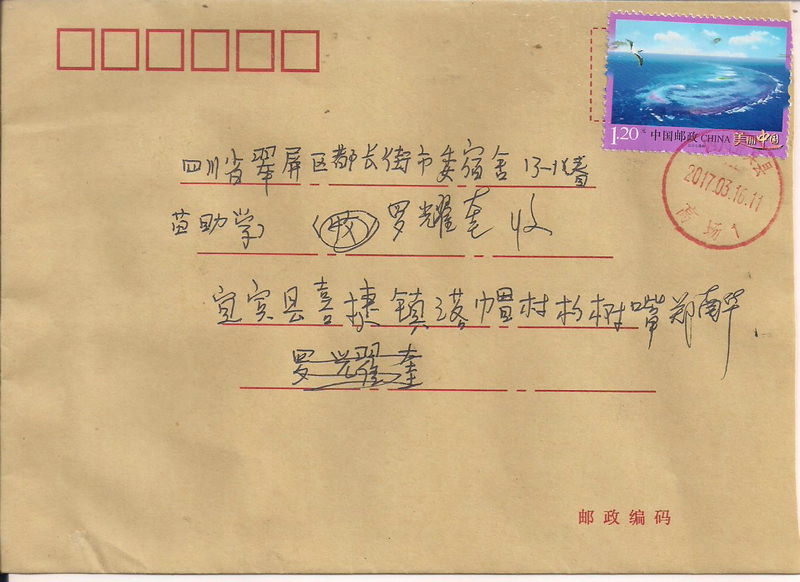 1.20元 中国邮政 CHINA 美丽中国
2017.03.16.11
四川省翠屏区都长街市委宿舍 13-18春
苗助学 罗耀奎 收
宜宾县喜捷镇塔帽村杉树嘴郑南华
罗兴耀奎
邮政编码